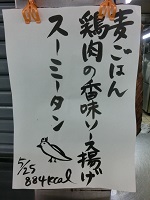 麦ごはん
鶏肉の香味ソース揚げ
スーミータン
5/25
884kcal